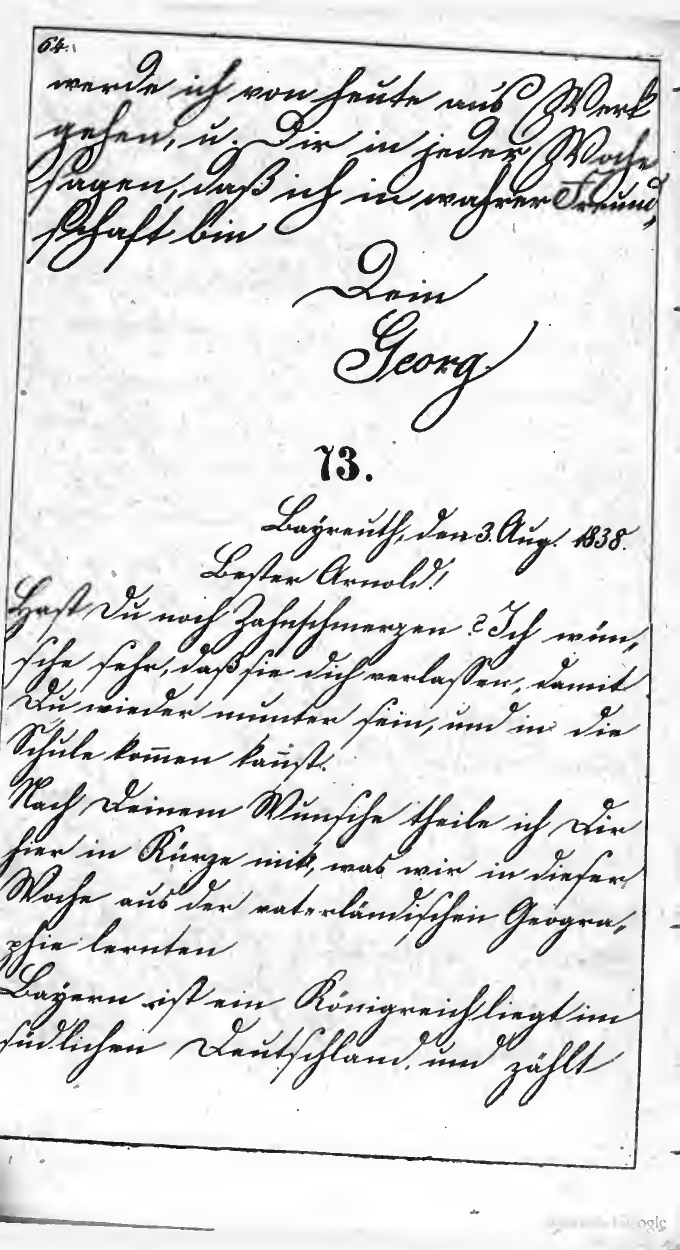 64.
werde ich von heute ans Werk
gehen, u. Dir in jeder Woche
sagen, daß ich in wahrer Freund,
schaft bin
Dein
Georg
73.
Bayreuth, den 3. Aug. 1838.
Bester Arnold!
Hast Du noch Zahnschmerzen? Ich wün,
sche sehr, daß sie dich verlassen, damit
Du wieder munter sein, und in die
Schule kom̄en kan̄st.
Nach Deinem Wunsche theile ich Dir
hier in Kürze mit, was wir in dieser
Woche aus der vaterländischen Geogra,
phie lernten
Bayern ist ein Königreich liegt im
südlichen Deutschland, und zählt